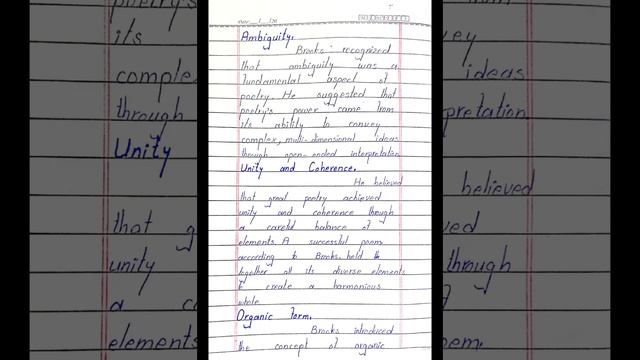 Ambiguity.
Brooks recognized
that ambiguity was a
fundamental aspect of
poetry. He suggested that
poetry's power came from
its ability to convey
complex, multi-dimensional ideas
through open-ended interpretation
Unity and Coherence.
He believed
that great poetry achieved
unity and coherence through
a careful balance of
elements. A successful poem
according to Brooks, held
together all its diverse elements
to create a harmonious
whole
Organic Form.
Brooks introduced
the concept of organic